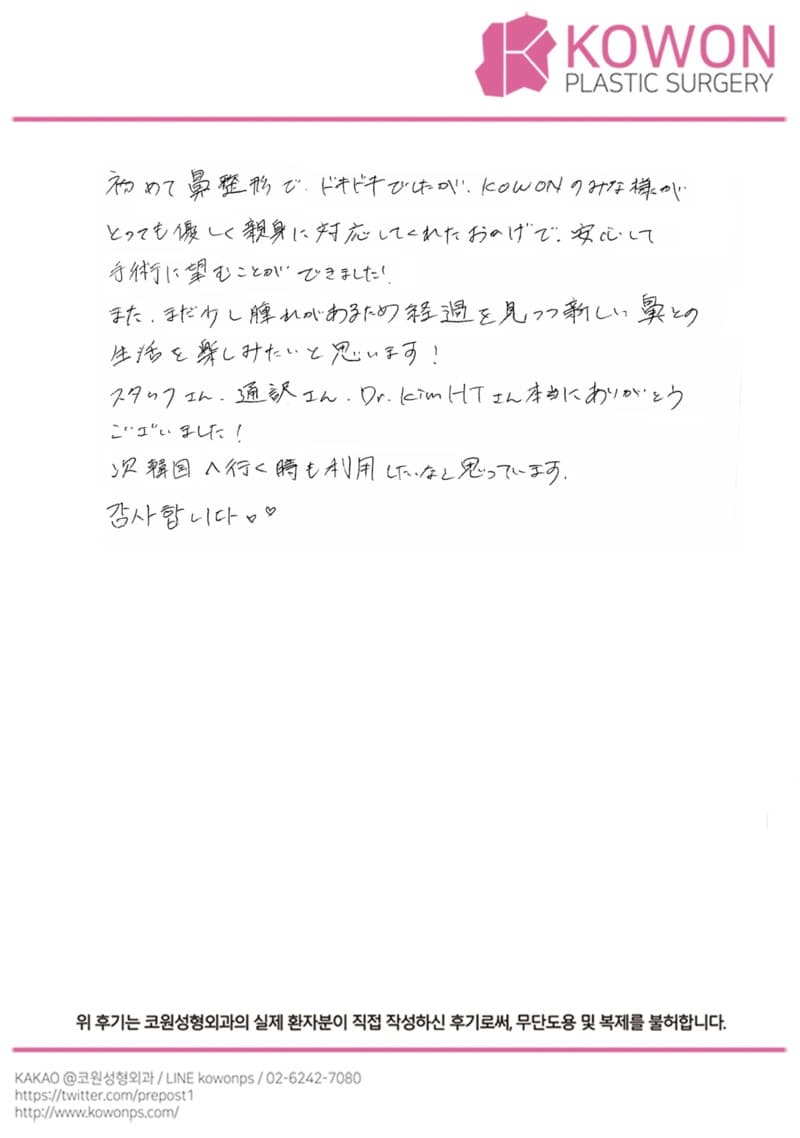 KOWON
PLASTIC SURGERY
初めて鼻整形で、ドキドキでしたが、KOWONのみな様が
とっても優しく親身に対応してくれたおかげで、安心して
手術に望むことができました!
また、まだ少し腫れがあるため経過を見つつ新しい鼻との
生活を楽しみたいと思います!
スタッフさん、通訳さん、Dr.KimHTさん本当にありがとう
ございました!
次韓国へ行く時も利用したいなと思っています。
감사합니다♡♡
위 후기는 코원성형외과의 실제 환자분이 직접 작성하신 후기로써, 무단도용 및 복제를 불허합니다.
KAKAO @코원성형외과 / LINE kowonps / 02-6242-7080
https://twitter.com/prepost1
http://www.kowonps.com/